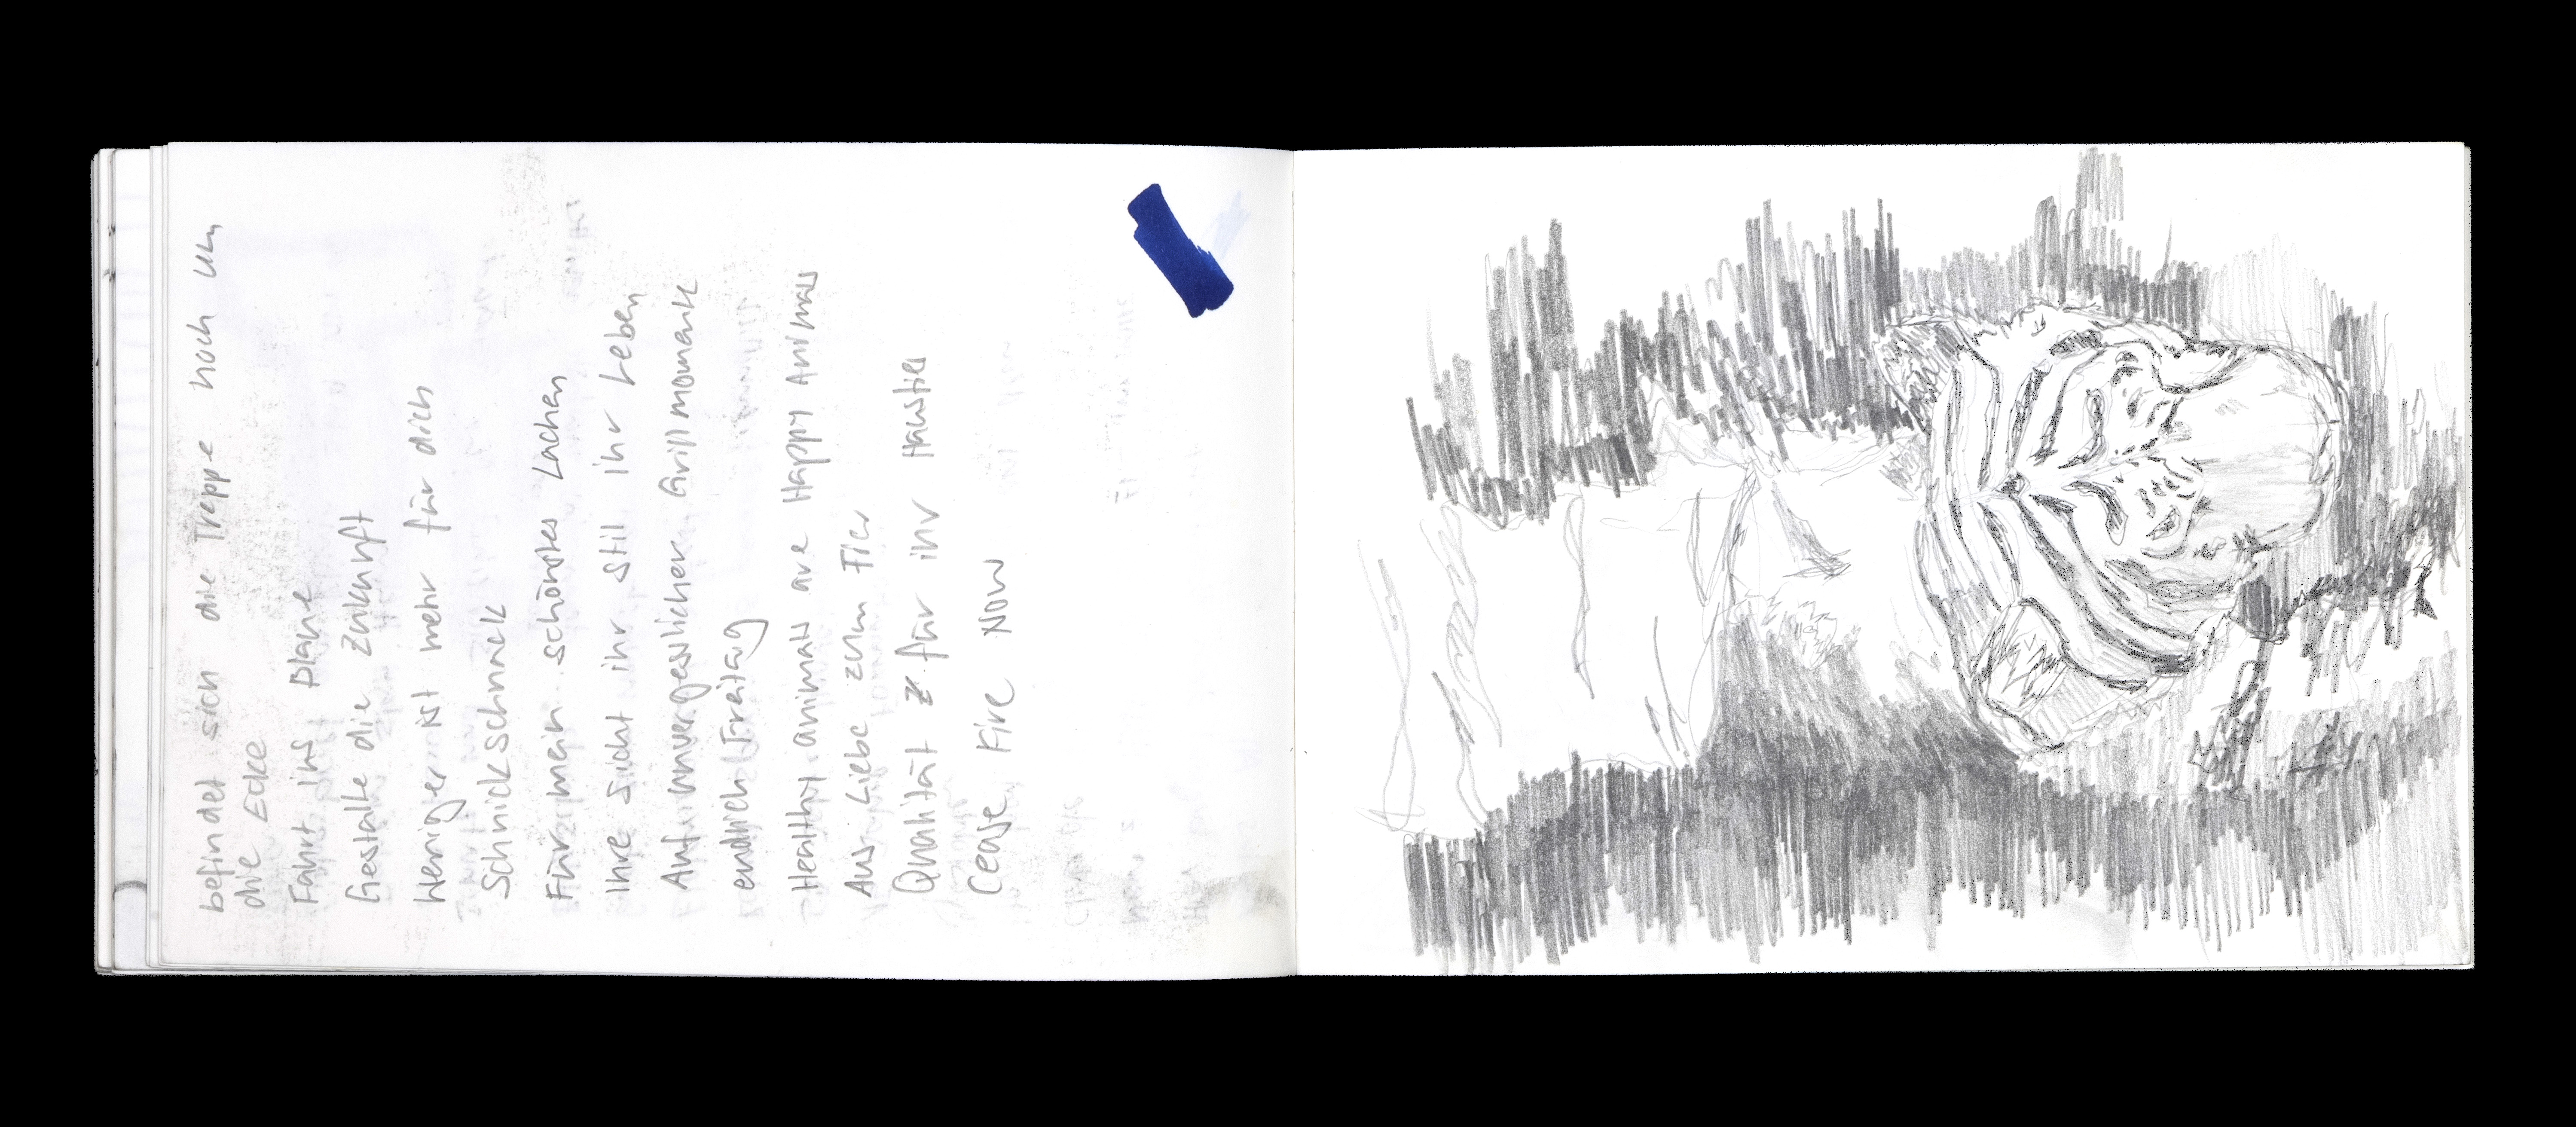 befindet sich die Treppe noch um
die Ecke
Fahrt ins Blaue
Gestalte die Zukunft
Weniger ist mehr für dich
Schnickschnack
Für mein schönstes Lachen
Ihre Sicht ihr Stil ihr Leben
Auf unvergesslicher Grillmomente
endlich Freitag
Healthy animals are Happy Animals
Aus Liebe zum Tier
Qualität für ihr Haustier
Cease Fire Now